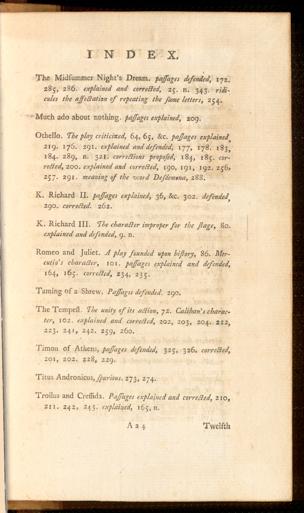 INDEX.
The Midſummer Night's Dream. paſſages defended, 172.
285, 286. explained and corrected, 25. n. 343. ridi-
cules the affectation of repeating the ſame letters, 254.
Much ado about nothing. paſſages explained, 209.
Othello. The play criticized, 64, 65, &c. paſſages explained,
219. 176. 291. explained and defended, 177, 178. 183,
184. 289, n. 321. corrections propoſed, 184, 185. cor-
rected, 200. explained and corrected, 190, 191, 192. 256,
257. 291. meaning of the word Deſdemona, 288.
K. Richard II. paſſages explained, 36, &c. 302. defended,
290. corrected. 262.
K. Richard III. The character improper for the ſtage, 80.
explained and defended, 9. n.
Romeo and Juliet. A play founded upon hiſtory, 86. Mer-
cutio's character, 101. paſſages explained and defended,
164, 165. corrected, 234, 235.
Taming of a Shrew. Paſſages defended. 290.
The Tempeſt. The unity of its action, 72. Caliban's charac-
ter, 102. explained and corrected, 202, 203, 204. 212,
223. 241, 242. 259, 260.
Timon of Athens, paſſages defended, 325, 326. corrected,
201, 202. 228, 229.
Titus Andronicus, ſpurious. 273, 274.
Troilus and Creſſida. Paſſages explained and corrected, 210,
211. 242, 243. explained, 165, n.
A a 4 Twelfth